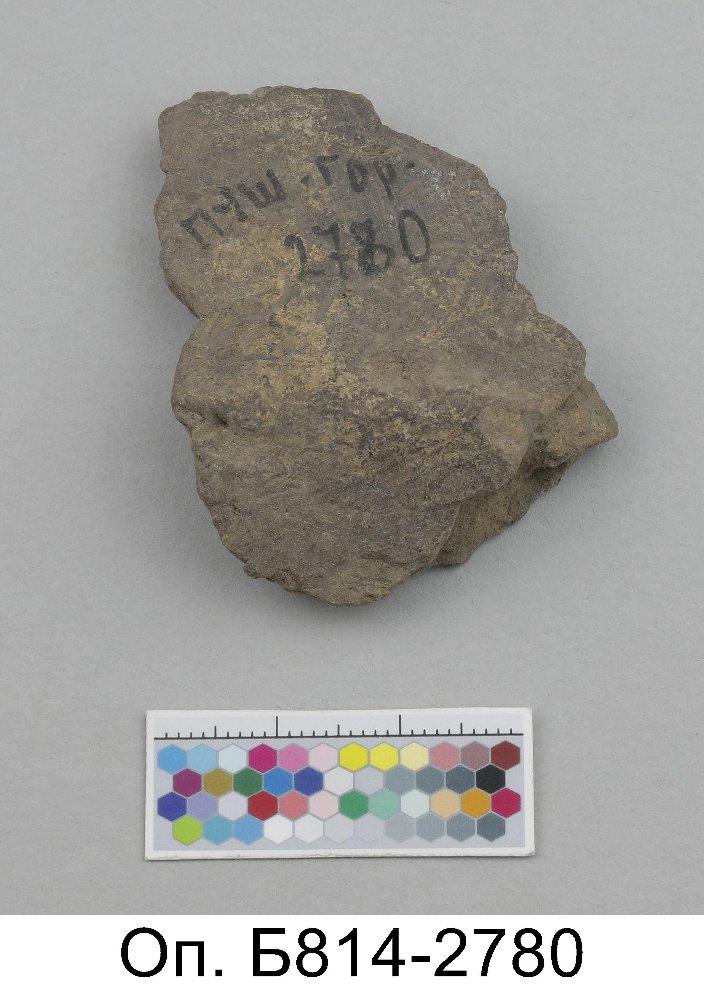 пуш. гор.
2780
Оп. Б814-2780